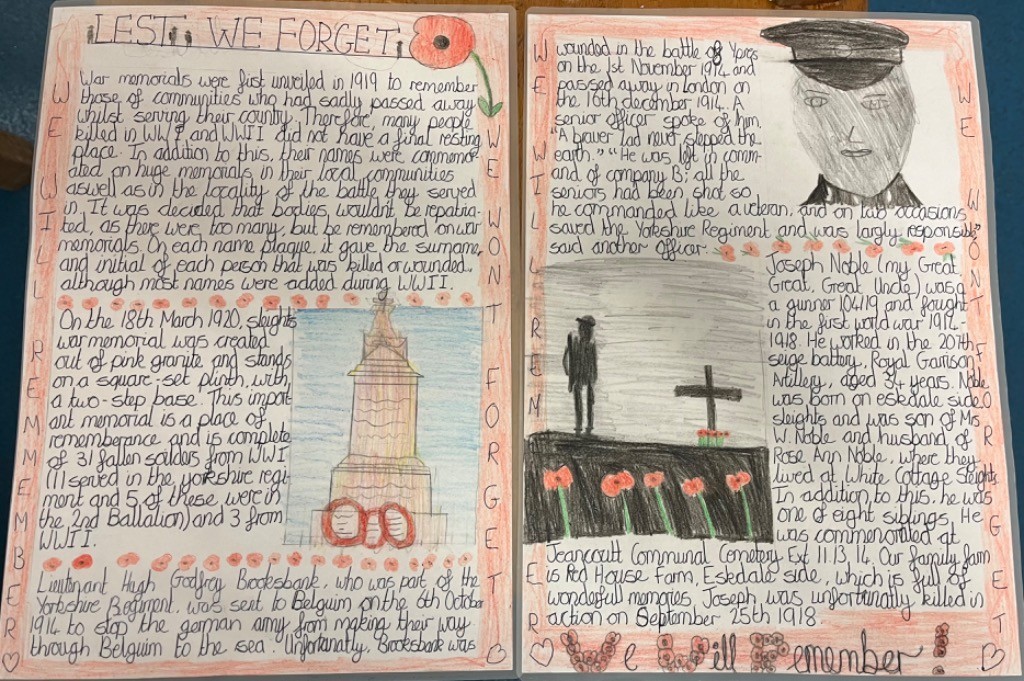 LEST WE FORGET
War memorials were first unveiled in 1919 to remember
those of communities who had sadly passed away
whilst serving their country. Therefore, many people
killed in WWI and WWII did not have a final resting
place. In addition to this, their names were commemor-
ated on huge memorials in their local communities
aswell as in the locality of the battle they served
in. It was decided that bodies, wouldnt be repatria-
ted, as there were too many, but be remembered on war
memorials. On each name plaque, it gave the surname,
and initial of each person that was killed or wounded,
although most names were added during WWII.
On the 18th March 1920, sleights
war memorial was created
out of pink granite and stands
on a square-set plinth, with
a two-step base. This import-
ant memorial is a place of
rememberance and is complete
of 31 fallen soilders from WWI
(11 served in the yorkshire regi-
ment and 5 of these were in
the 2nd Ballation) and 3 from
WWII.
Lieutenant Hugh Godfrey Brooksbank, who was part of the
Yorkshire Regiment, was sent to Belguim on the 6th October
1914 to stop the german army from making their way
through Belguim to the sea. Unfortunatly, Brooksbank was
WE WILL REMEMBER
WE WONT FORGET
wounded in the battle of Yeres
on the 1st November 1914 and
passed away in London on
the 16th december 1914. A
senior officer spoke of him,
"A braver lad never stepped the
earth." "He was left in comm-
and of company B; all the
seniors had been shot so
he commanded like a veteran, and on two occasions
saved the Yorkshire Regiment and was largly responsible"
said another officer.
Joseph Noble (my Great
Great, Great Uncle) was a
a gunner 104119 and fought
in the first world war 1914-
1918. He worked in the 207th
seige battery, Royal Garrison
Artillery, aged 34 years. Noble
was born on eskdale side
sleights and was son of Mrs
W. Noble and husband of
Rose Ann Noble, where they
lived at White Cottage Sleights
In addition to this, he was
one of eight siblings. He
was commemorated at
Jeancourt Communal Cemetery Ext 11.13.14. Our family farm
is Red House Farm, Eskdale side, which is full of
wonderful memories. Joseph was unfortunatly killed in
action on September 25th 1918.
WE WILL REMEMBER
WE WONT FORGET
We Will Remember!